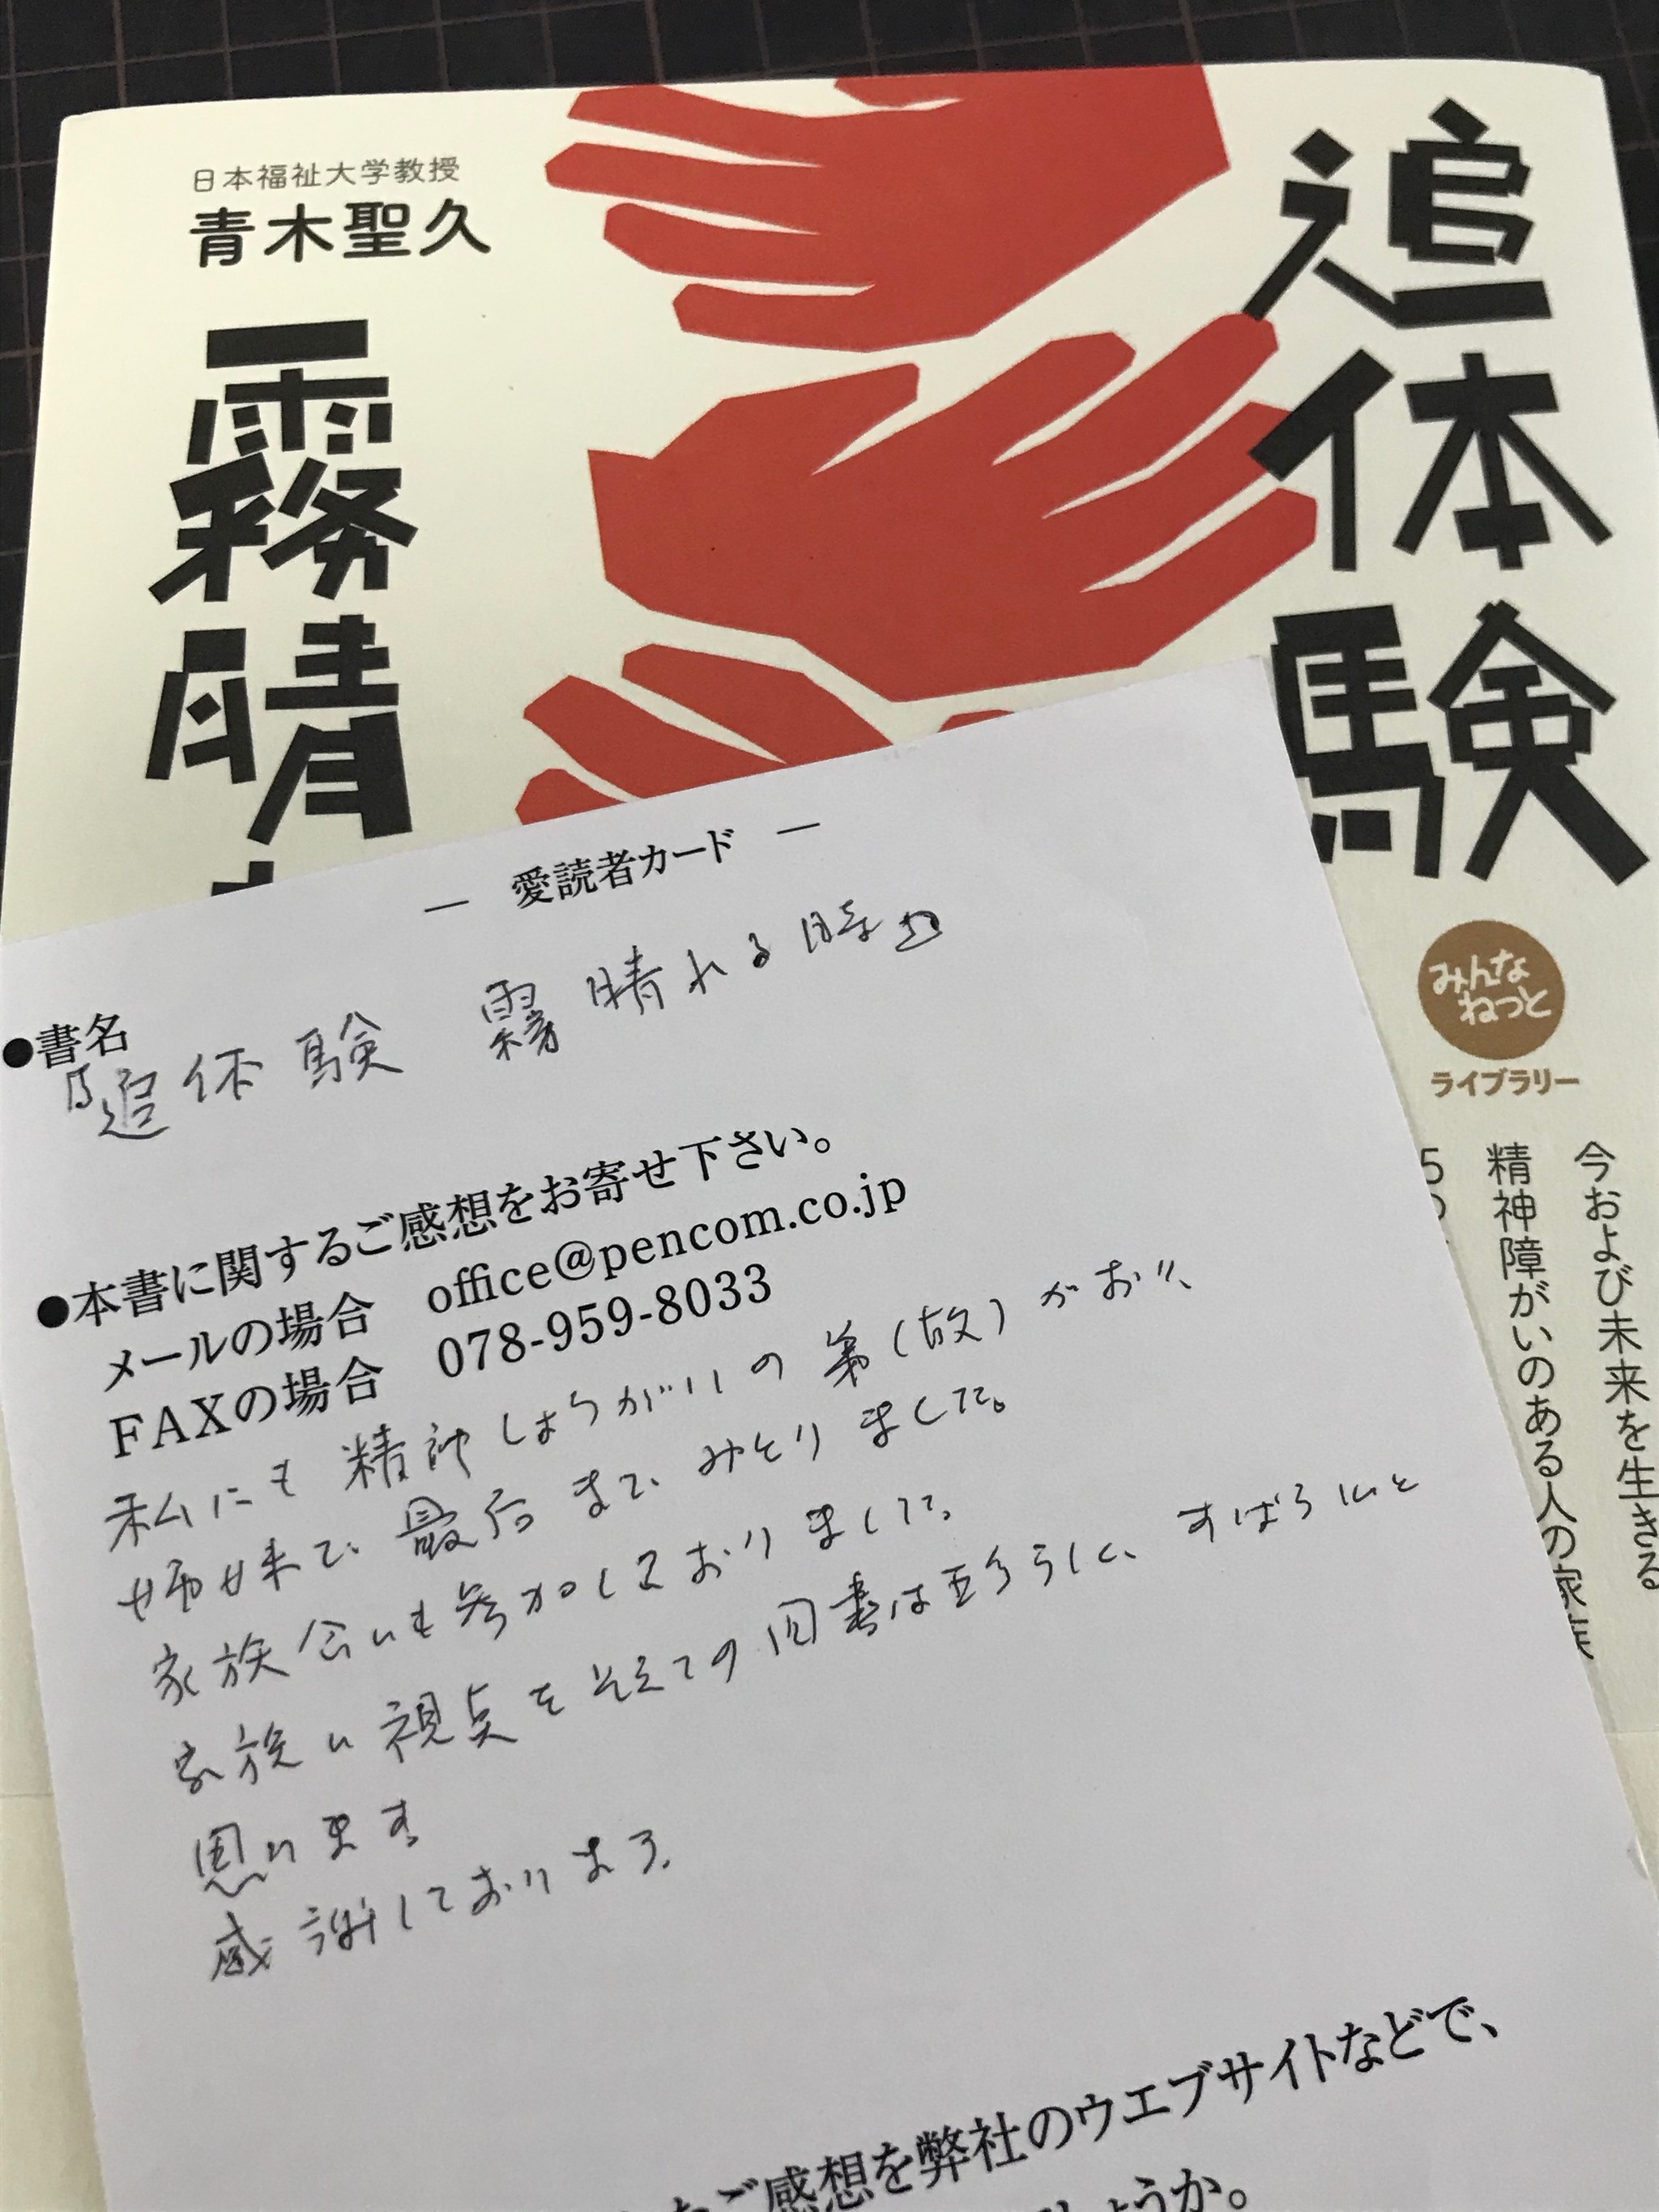 日本福祉大学教授
青木聖久
追体験
霧晴
みんな
ねっと
ライブラリー
今および未来を生きる
精神障がいのある人の家族
― 愛読者カード ―
●書名
『追体験 霧晴れる時』
●本書に関するご感想をお寄せ下さい。
メールの場合 office@pencom.co.jp
FAXの場合 078-959-8033
私にも精神しょうがいの弟(故)がおり、
姉妹で、最后まで、みとりました。
家族会にも参加しておりました。
家族に視点をそえての図書は
すばらしいと
思います
感謝しております。
ご感想を弊社のウエブサイトなどで、
ょうか。